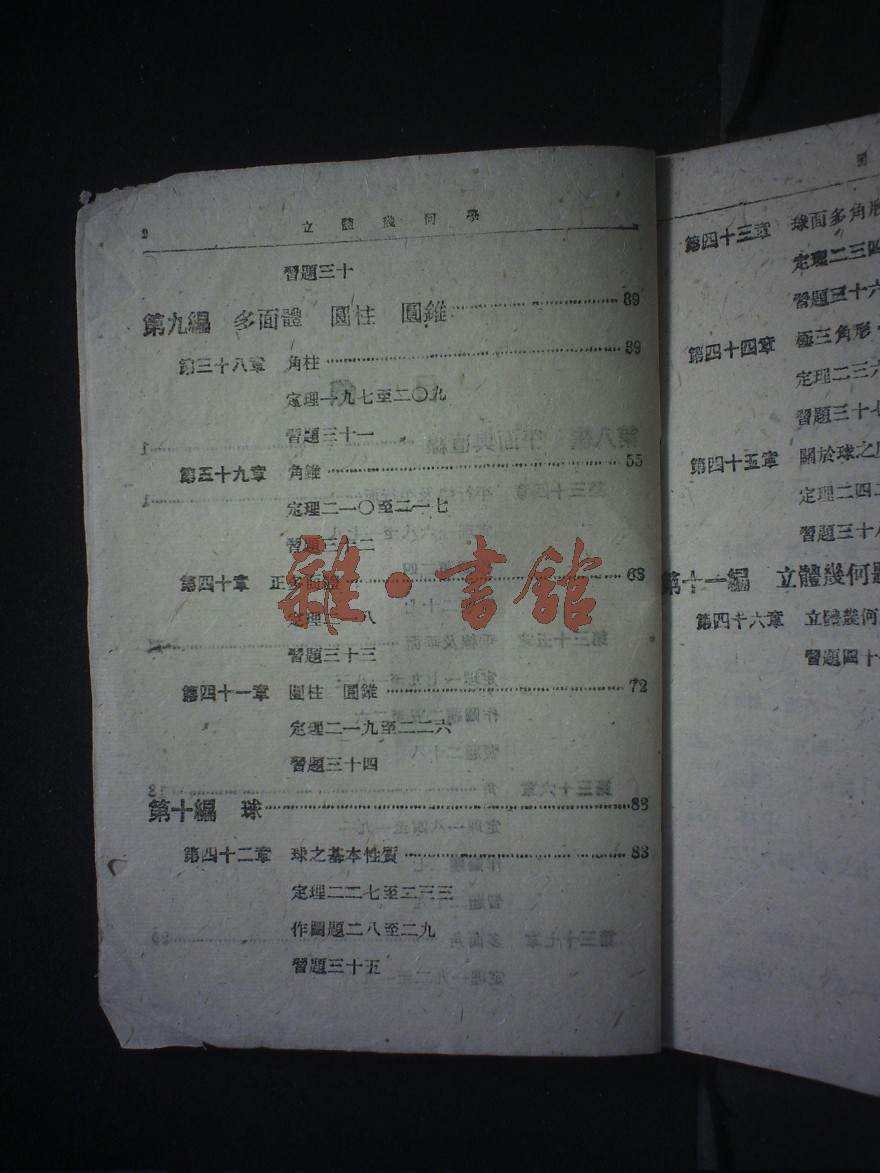 2 立體幾何學
習題三十
第九編 多面體 圓柱 圓錐 39
第三十八章 角柱 39
定理一九七至二〇九
習題三十一
第三十九章 角錐 55
定理二一〇至二一七
習題三十二
第四十章 正多面體 68
定理二一八
習題三十三
第四十一章 圓柱 圓錐 72
定理二一九至二二六
習題三十四
第十編 球 88
第四十二章 球之基本性質 88
定理二二七至二三三
作圖題二八至二九
習題三十五
第四十三章 球面多角形
定理二三四
習題三十六
第四十四章 極三角形
定理二三六
習題三十七
第四十五章 關於球之
定理二四二
習題三十八
第十一編 立體幾何
第四十六章 立體幾何
習題四十
雜·書館